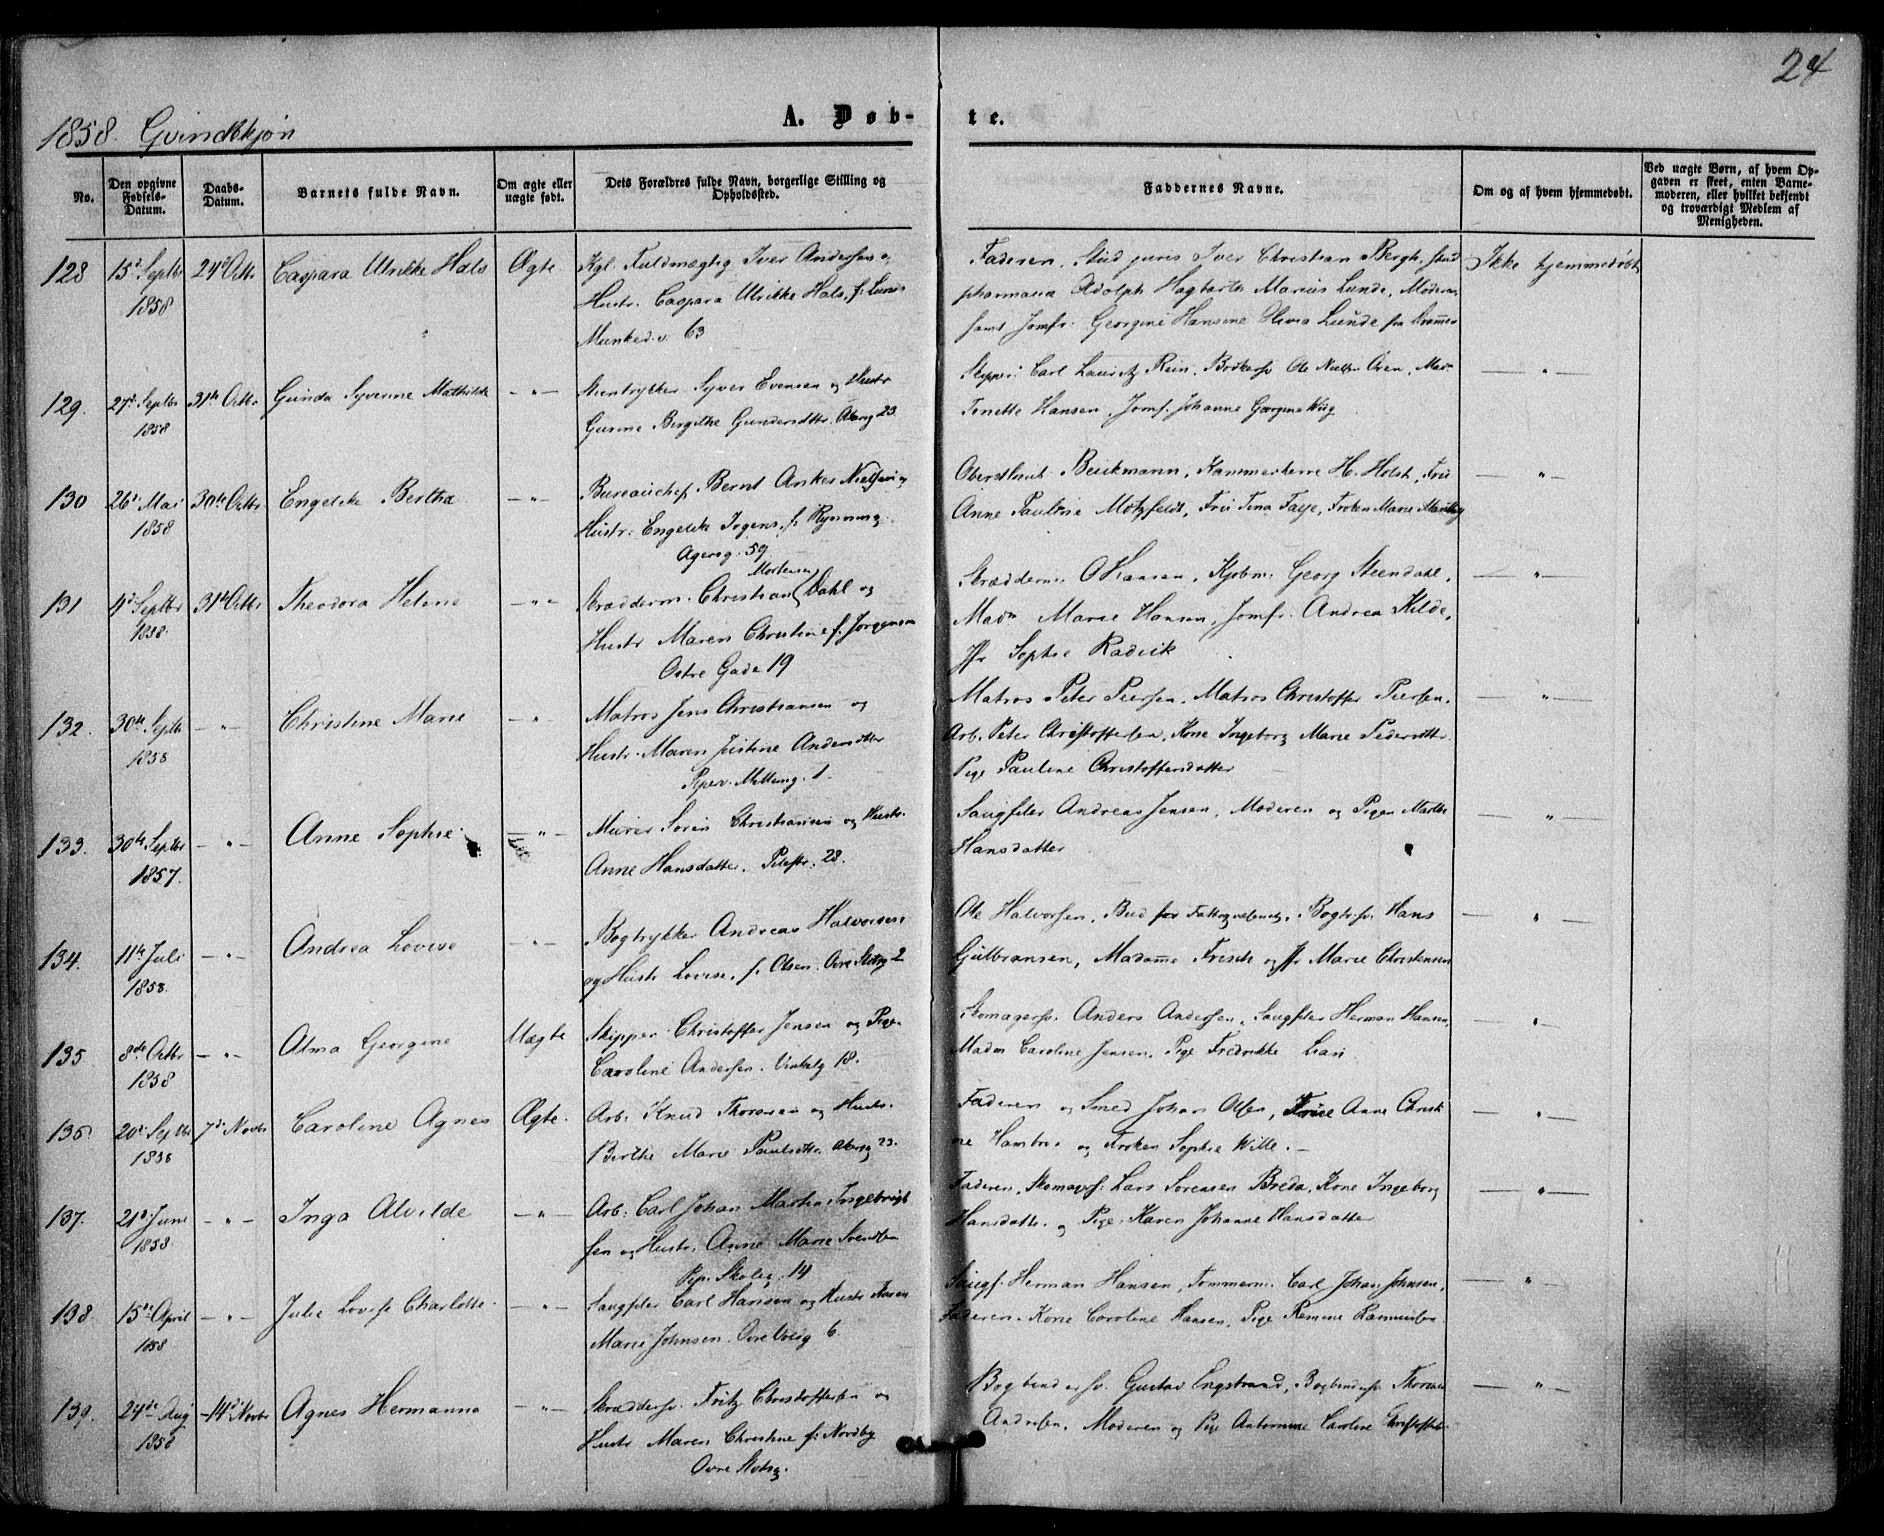 24
1858. Qvindekjøn
A. Døbte.
No.
Den opgivne Fødsels-Datum.
Daabs-Datum.
Barnets fulde Navn.
Om ægte eller uægte født.
Dets Forældres fulde Navn, borgerlige Stilling og Opholdssted.
Faddernes Navne.
Om og af hvem hjemmedøbt.
Ved uægte Børn, af hvem Opgaven er skeet, enten Barnemoderen, eller hvilket bekjendt og troværdigt Medlem af Menigheden.
128 15d Septbr 1858 24d Octbr Caspara Ulrikke Hals Ægte.
Kgl. Fuldmægtig Iver Andersen og
Hustr. Caspara Ulrikke Hals, f. Lund
Munked.v. 63
Faderen, Stud juris Iver Christian Bergh, stud
pharmacia Adolph Hagbarth Marius Lunde, Moderen
samt Jomfr. Georgine Hansine Olivia Lunde fra
Ikke hjemmedøbt
129. 27d Septbr 1858 31te Octbr Gunda Syverine Mathilde — " —
Stentrykker Syver Evensen og Hustr
Gurine Bergithe Gundersdttr. 23
Skipper Carl Lauritz Rein, Ole Øren, Mad
Tonette Hansen, Jomf. Johanne Georgine
— " —
130 26d Mai 1858 30te Octbr Engelike Bertha — " —
Bureauchef Bernt Anker Nielsen og
Hustr: Engelike Irgens, f. Rynning.
Agersg. 59
Oberstlieut Beichmann, Kammerherre H. Holst, Fru
Anne Pauline Motzfeldt, Fru Tina Faye, Frøken Marie
— " —
131 4d Septbr 1858. 31te Octbr Theodora Helene — " —
Skrædderm. Christian Mortensen Dahl og
Hustr Maren Christine f. Jørgensen
Østre Gade 19
Skrædderm. O Hansen, Kjøbm. Georg Steendahl,
Madm Marie Hansen, Jomfr. Andrea Kilde,
Jfr Sophie Radvik
— " —
132. 30te Septbr 1858 — " — Christine Marie — " —
Matros Jens Christiansen og
Hustr. Maren Justine Andersdtter
Piperv. 1.
Matros Peter Peersen, Matros Christoffer Peersen,
Arb. Peter Christoffersen, Kone Ingeborg Marie Pedersdtter
Pige Pauline Christoffersdatter
— " —
133. 30te Septbr 1857. — " — Anne Sophie. — " —
Murer Søren Christiansen og Hustr.
Anne Hansdatter. Pilestr. 28.
Saugfiler Andreas Jensen, Moderen og Pigen Marthe
Hansdatter
— " —
134. 11te Juli 1858. — " — Andrea Lovise — " —
Bogtrykker Andreas Halvorsen
og Hustr Lovise, f. Olsen. Øvre Slotsg 2
Ole Halvorsen, Bud for Fattigvæsenet, Bogtr.sv. Hans
Gulbransen, Madame Frisch og Jfr Marie Christensen
— " —
135. 8de Octbr 1858 — " — Alma Georgine Uægte
Skipper Christoffer Jensen og Pige
Caroline Andersen. Vinkelg 18.
Skomagersv. Anders Andersen, Saugfiler Herman Hansen,
Madm Caroline Jensen, Pige Fredrikke
— " —
136. 20d Septbr 1858 7d Novbr Caroline Agnes Ægte.
Arb. Knud Thoresen og Hustr.
Birthe Marie Paulsdtter 23.
Faderen og Smed Johan Olsen, Anne Christi
ne og Frøken Sophie Wille. —
— " —
137. 21d Juni 1858. — " — Inga Alvilde — " —
Arb. Carl Johan Martin Ingebrigt
sen og Hustr. Anne Marie Svendsen
Pip. Skoleg. 14
Faderen, Skomagersv. Lars Sørensen Breda, Kone Ingeborg
Hansdatter og Pige Karen Johanne Hansdatter
— " —
138. 15de April 1858 — " — Julie Lovise Charlotte. — " —
Saugfiler Carl Hansen og Hustr Karen
Marie Johnsen. Øvre Voldg 6.
Saugf. Herman Hansen, Tømmerm. Carl Johan Johnsen,
Faderen, Kone Caroline Hansen, Pige Rasmussen.
— " —
139. 24de Aug 1858 14d Novbr Agnes Hermanna — " —
Skræddersv. Fritz Christoffersen og
Hustr Maren Christine f: Nordby
Øvre Slotsg.
Bogbindersv. Gustav Engstrand, Bogbindersv Thorvald
Andersen, Moderen og Pige Caroline
— " —